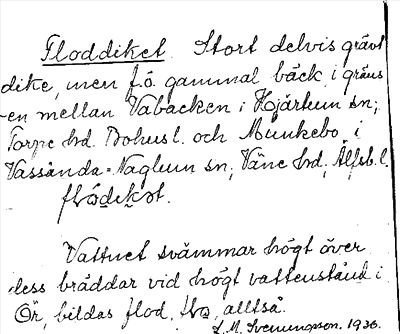 Floddiket. Stort delvis grävt
dike, men f.ö. gammal bäck, i gräns
-en mellan Vabacken i Hjärtum sn;
Torpe hd. Bohusl. och Munkebo i
Vassända-Naglum sn; Väne hd, Älfsb. l.
Vattnet svämmar högt över
dess bräddar vid högt vattenstånd i
Ör, bildas flod, alltså.
Svenungson. 1930.